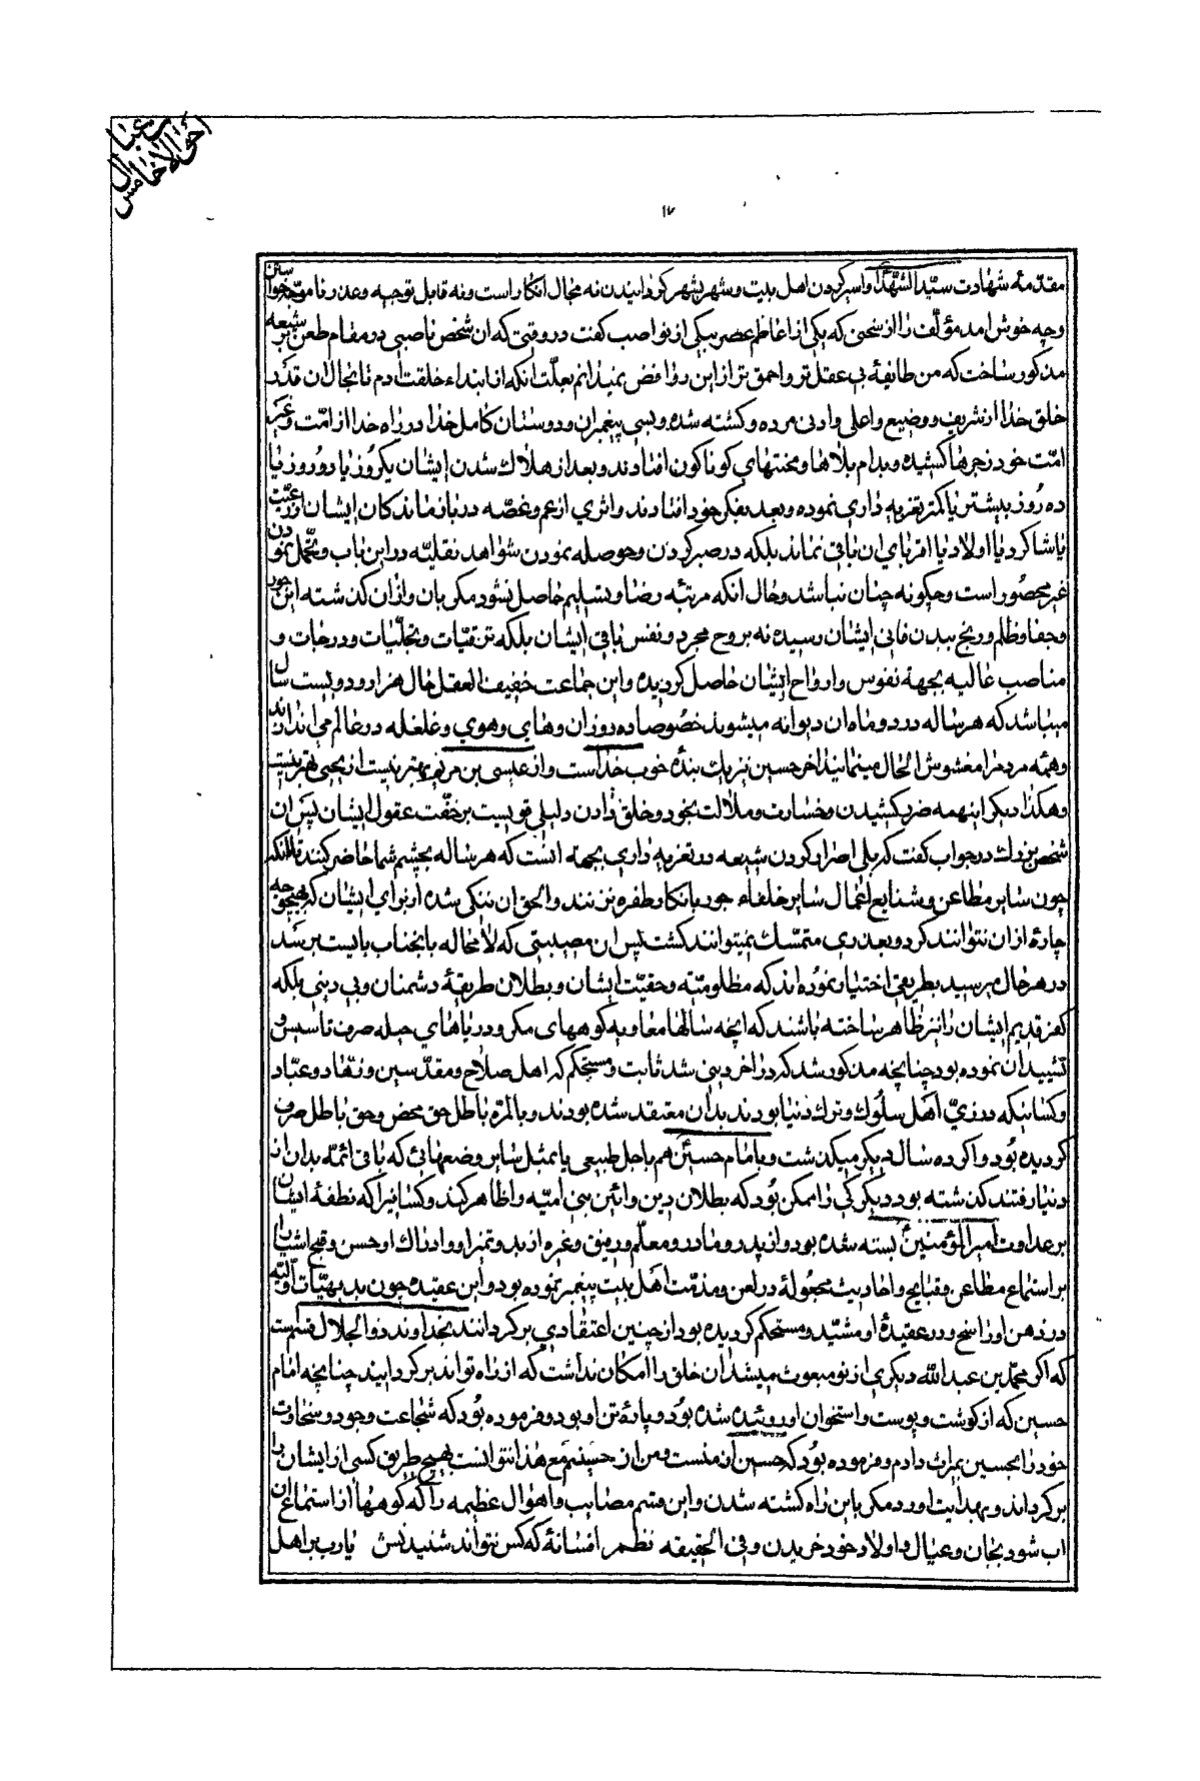 ۱۷
مقدّمهٔ شهادت سیّد الشّهدا واسیر کردن اهل بیت وشهر بشهر کردانیدن نه مجال انکار است ونه قابل توجیه وعذر ناموجّه جواب ساختن
وچه خوش امد مؤلّف را از سخنی که یکی از اعاظم عصر بیکی از نواصب کفت در وقتی که ان شخص ناصبی در مقام طعن بر شیعه
مذکور ساخت که من طایفهٔ بی عقل تر واحمق تر از این روافض نمیدانم بعلّت انکه از ابتداء خلقت ادم تا بحال ان قدر
خلق خدا از شریف ووضیع واعلی وادنی مرده وکشته شده وبسی پیغمبران ودوستان کامل خدا در راه خدا از امّت وغیر
امّت خود زجرها کشیده وبدام بلاها ومحنتهای کوناکون افتادند وبعد از هلاک شدن ایشان یکروز یا دوروز یا
ده روز بیشتر یا کمتر تعزیه داری نموده وبعد بفکر خود افتادند واثری از غم وغصّه در بازماندکان ایشان از رعیّت
یا شاکرد یا اولاد یا اقربای ان باقی نماند بلکه در صبر کردن وحوصله نمودن شواهد نقلیّه در این باب وتحمّل نمودن
غیر محصور است وچکونه چنان نباشد وحال انکه مرتبه رضا وتسلیم حاصل نشود مکر بان واز ان کذشته این جور
وجفا وظلم ورنج ببدن فانی ایشان رسیده نه بروح مجرد ونفس باقی ایشان بلکه ترقیّات وتجلّیات ودرجات و
مناصب عالیه بجههٔ نفوس وارواح ایشان حاصل کردیده واین جماعت خفیف العقل حال هزار ودویست سال
میباشد که هر ساله در دو ماه ان دیوانه میشوند خصوصا ده روز ان وهای وهوی وغلغله در عالم می اندازند
وهمه مردم را مغشوش الحال مینمایند اخر حسین نیز یک بندهٔ خوب خدا است واز عیسی بن مریم بهتر نیست از یحیی بهتر نیست
وهکذا دیکر اینهمه ضرر کشیدن وخسارت وملالت بخود وخلق دادن دلیلی قویست بر خفّت عقول ایشان پس ان
شخص بزرک در جواب کفت که بلی اصرار کردن شیعه در تعزیه داری بجهة انست که هر ساله بچشم شما حاضر کنند تا انکه
چون سایر مطاعن وشنایع اعمال سایر خلفاء جور بانکار وطفره نزنند والحق ان ننکی شده از برای ایشان که بهیچوجه
چارهٔ از ان نتوانند کرد وبعذری متمسّک نمیتوانند کشت پس ان مصیبتی که لا محاله بانجناب بایست برسد
در هر حال میرسید بطریقی اختیار نموده اند که مظلومیّة وحقیّت ایشان وبطلان طریقهٔ دشمنان وبی دینی بلکه
کفر قدیم ایشان را نیز ظاهر ساخته باشند که انچه سالها معاویه کوههای مکر ودریاهای حیله صرف تاسیس و
تشیید ان نموده بود چنانچه مذکور شد که در اخر دینی شد ثابت ومستحکم که اهل صلاح ومقدّسین وزهّاد وعبّاد
وکسانیکه در زیّ اهل سلوک وترک دنیا بودند بدان معتقد شده بودند وبالمرّه باطل حق محض وحق باطل صرف
کردیده بود واکر ده سال دیکر میکذشت وامام حسین هم باجل طبیعی یا بمثل سایر وضعهائی که باقی ائمّه بدان از
دنیا رفتند کذشته بود دیکر کی را ممکن بود که بطلان دین وائین بنی امیّه را ظاهر کند وکسانیرا که نطفهٔ ایشان
بر عداوت امیر المؤمنین بسته شده بود واز پدر ومادر ومعلّم ورفیق وغیره از بدو تمیز او وادراک او حسن وقبح اشیا را
بر استماع مطاعن وقبایح واحادیث مجعولهٔ در لعن ومذمّت اهل بیت پیغمبر نموده بود واین عقیده چون بدیهیّات اولیّه
در ذهن او راسخ ودر عقیدهٔ او مشیّد ومستحکم کردیده بود از چنین اعتقادی بر کردانند بخداوند ذو الجلال قسمست
که اکر محمّد بن عبد الله دیکری از نو مبعوث میشد ان خلق را امکان نداشت که از راه تواند بر کردانید چنانچه امام
حسین که از کوشت وپوست واستخوان او روئیده شده بود وپارهٔ تن او بود وفرموده بود که شجاعت وجود وسخاوت
خود را بحسین میراث دادم وفرموده بود که حسین از منست ومن از حسینم مع هذا نتوانست بهیچ طریق کسی از ایشان را
بر کرداند وبهدایت اورد مکر باین راه کشته شدن واین قسم مصایب واهوال عظیمه را که کوهها از استماع ان
اب شود بجان وعیال واولاد خود خریدن وفی الحقیقه نظم افسانهٔ که کس نتواند شنیدنش یا رب بر اهل